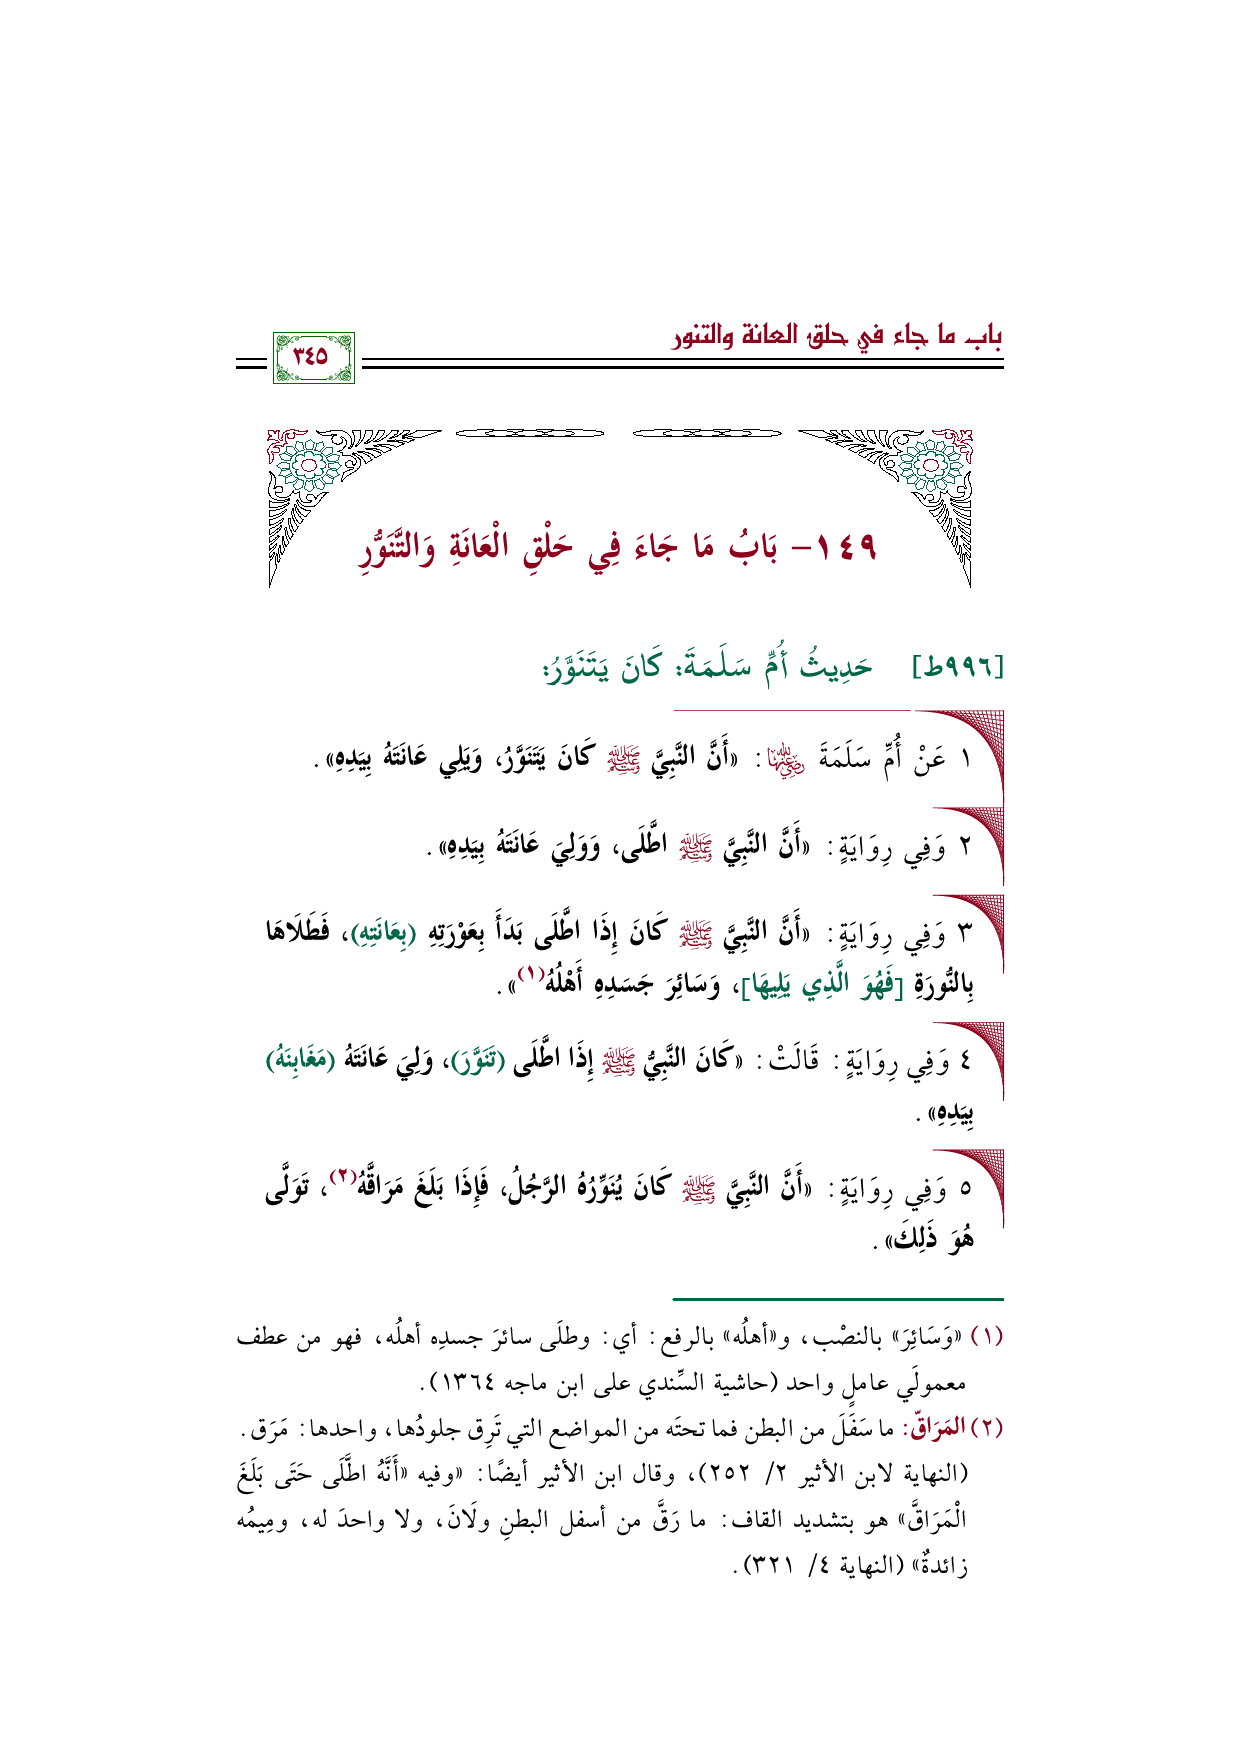 باب ما جاء في حلق العانة والتنور
٣٤٥
١٤٩- بَابُ مَا جَاءَ فِي حَلْقِ الْعَانَةِ وَالتَّنَوُّرِ
[٩٩٦ط] حَدِيثُ أُمِّ سَلَمَةَ: كَانَ يَتَنَوَّرُ:
١ عَنْ أُمِّ سَلَمَةَ رضي الله عنها: «أَنَّ النَّبِيَّ ﷺ كَانَ يَتَنَوَّرُ، وَيَلِي عَانَتَهُ بِيَدِهِ».
٢ وَفِي رِوَايَةٍ: «أَنَّ النَّبِيَّ ﷺ اطَّلَى، وَوَلِيَ عَانَتَهُ بِيَدِهِ».
٣ وَفِي رِوَايَةٍ: «أَنَّ النَّبِيَّ ﷺ كَانَ إِذَا اطَّلَى بَدَأَ بِعَوْرَتِهِ (بِعَانَتِهِ)، فَطَلَاهَا
بِالنُّورَةِ [فَهُوَ الَّذِي يَلِيهَا]، وَسَائِرَ جَسَدِهِ أَهْلُهُ(١)».
٤ وَفِي رِوَايَةٍ: قَالَتْ: «كَانَ النَّبِيُّ ﷺ إِذَا اطَّلَى (تَنَوَّرَ)، وَلِيَ عَانَتَهُ (مَغَابِنَهُ)
بِيَدِهِ».
٥ وَفِي رِوَايَةٍ: «أَنَّ النَّبِيَّ ﷺ كَانَ يُنَوِّرُهُ الرَّجُلُ، فَإِذَا بَلَغَ مَرَاقَّهُ(٢)، تَوَلَّى
هُوَ ذَلِكَ».
(١) «وَسَائِرَ» بالنصْب، و«أهلُه» بالرفع: أي: وطلَى سائرَ جسدِه أهلُه، فهو من عطف
معمولَي عاملٍ واحد (حاشية السِّندي على ابن ماجه ١٣٦٤).
(٢) المَرَاقّ: ما سَفَلَ من البطن فما تحتَه من المواضع التي تَرِق جلودُها، واحدها: مَرَق.
(النهاية لابن الأثير ٢/ ٢٥٢)، وقال ابن الأثير أيضًا: «وفيه «أَنَّهُ اطَّلَى حَتَى بَلَغَ
الْمَرَاقَّ» هو بتشديد القاف: ما رَقَّ من أسفل البطنِ ولَانَ، ولا واحدَ له، ومِيمُه
زائدةٌ» (النهاية ٤/ ٣٢١).